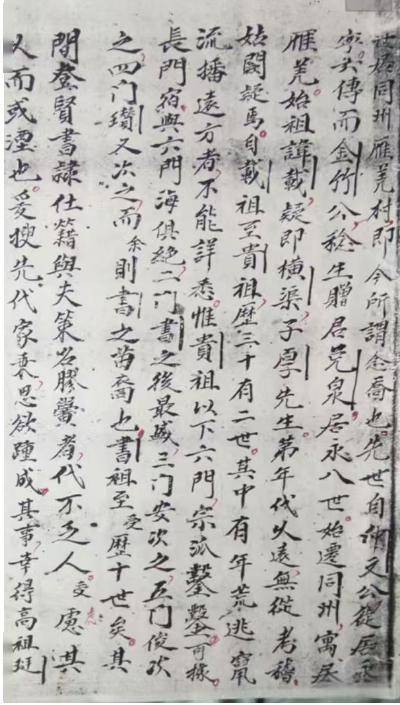 始同州雁羌村即今所謂金喬也先世自獅文公從居
傳而金竹公稔生贈居羌泉居永八世始遷同州寓居
雁羌始祖諱載疑即橫渠子厚先生第年代久遠無從考稽
姑闕疑焉自載祖至貴祖歷三十有二世其中有年荒逃竄
流播遠方者不能詳悉惟貴祖以下六門宗派鑿鑿可據
長門宿與六門海俱絕二門書之後最盛三門安次之五門俊次
之四門瓚又次之而余則書之苗裔也書祖至受歷十世矣其
間登賢書隸仕籍與夫策名膠黌者代不乏人受慮其
久而或湮也爰搜先代家乘思欲踵成其事幸得高祖珽